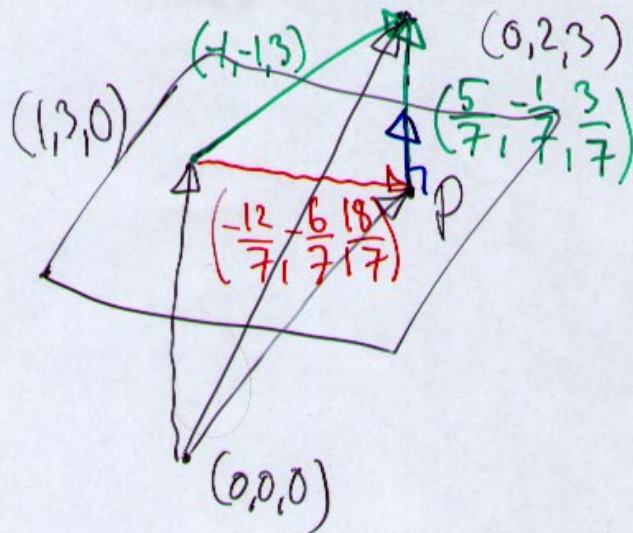 (-1,-1,3)
(0,2,3)
(1,3,0)
(5/7, -1/7, 3/7)
P
(-12/7, -6/7, 18/7)
(0,0,0)